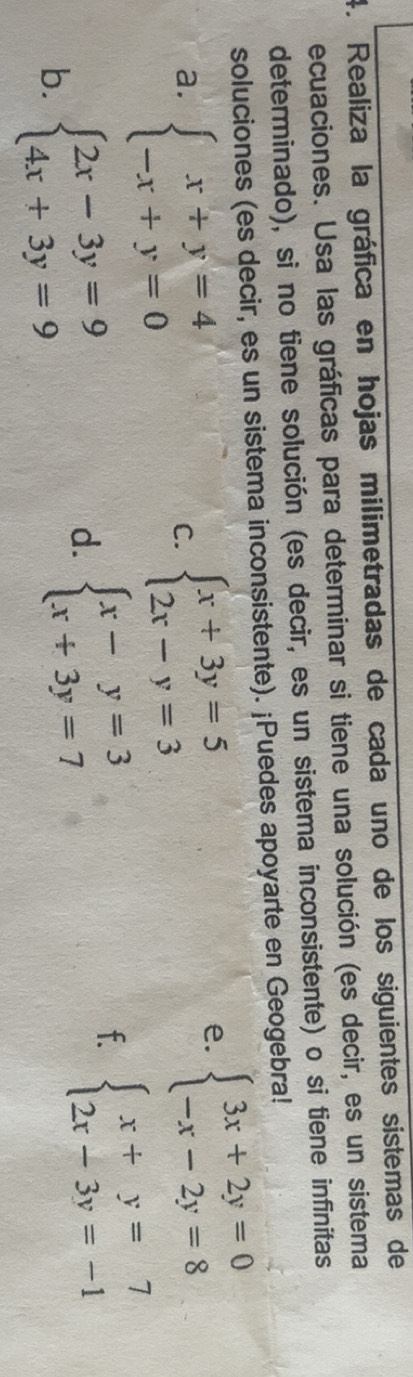 4. Realiza la gráfica en hojas milimetradas de cada uno de los siguientes sistemas de
ecuaciones. Usa las gráficas para determinar si tiene una solución (es decir, es un sistema
determinado), si no tiene solución (es decir, es un sistema inconsistente) o si tiene infinitas
soluciones (es decir, es un sistema inconsistente). ¡Puedes apoyarte en Geogebra!
a. { x + y = 4
-x + y = 0
b. { 2x - 3y = 9
4x + 3y = 9
c. { x + 3y = 5
2x - y = 3
d. { x - y = 3
x + 3y = 7
e. { 3x + 2y = 0
-x - 2y = 8
f. { x + y = 7
2x - 3y = -1